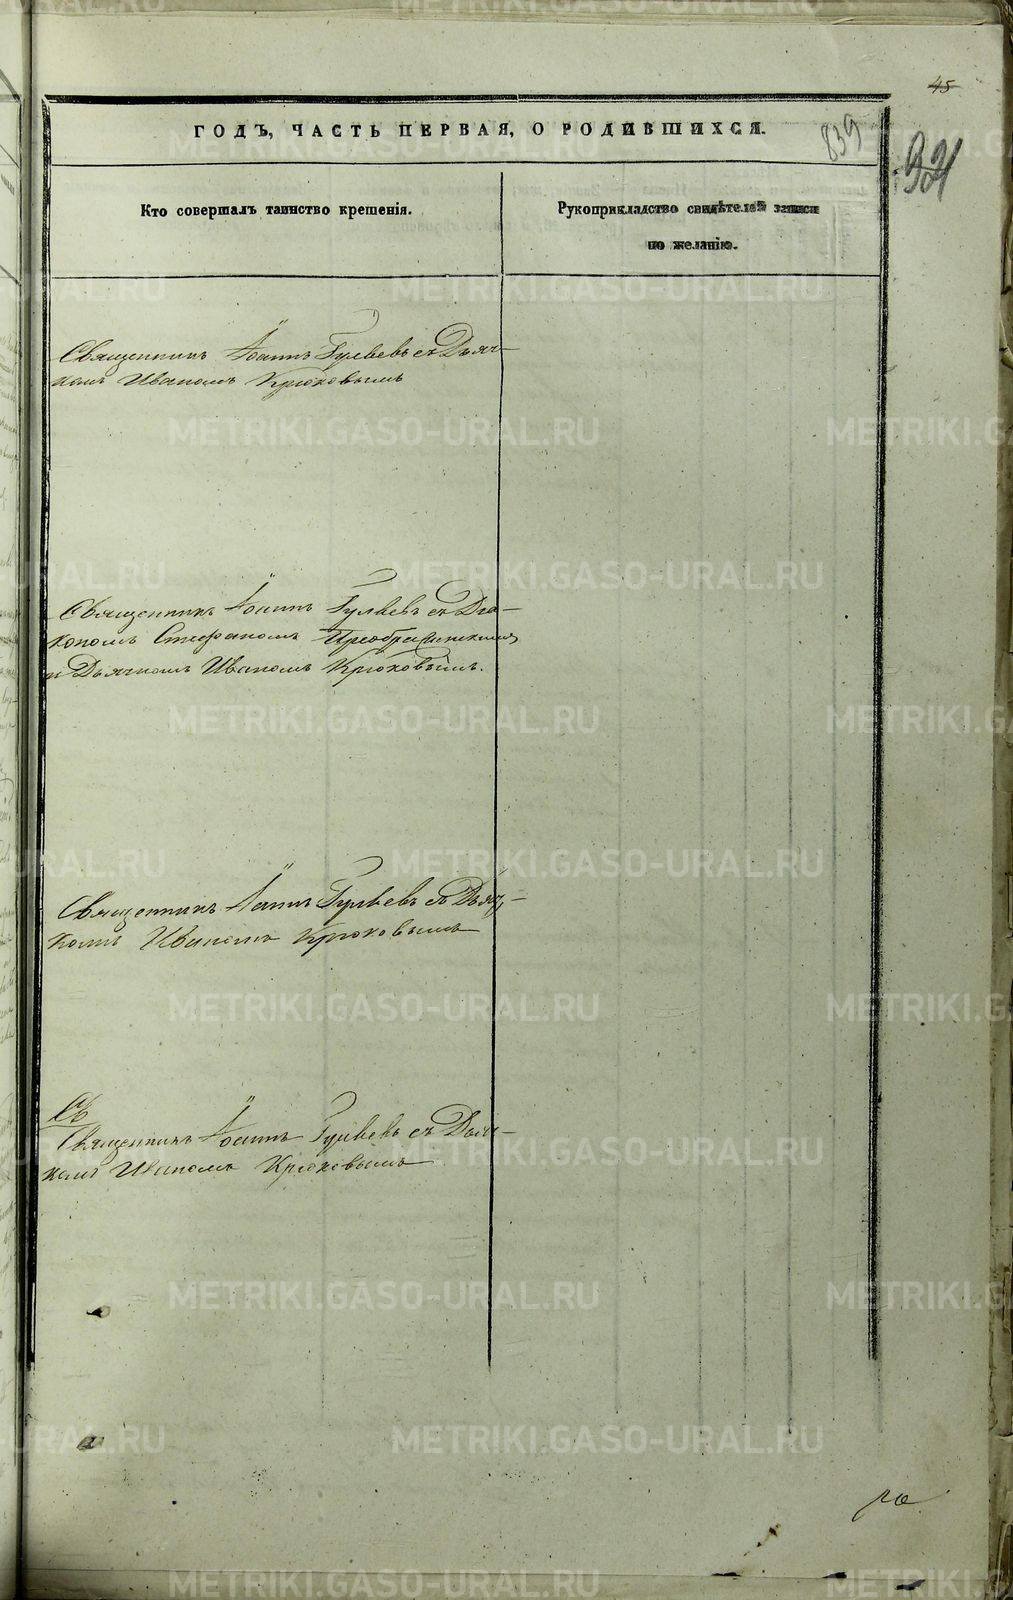 45
ГОДЪ, ЧАСТЬ ПЕРВАЯ, О РОДИВШИХСЯ.
839
Кто совершалъ таинство крещенія.
Рукоприкладство свидѣтелей записи
по желанію.
Священникъ Іоаннъ Гуляевъ съ Дьяч-
комъ Иваномъ Крюковымъ
Священникъ Іоаннъ Гуляевъ съ Діа-
кономъ Стефаномъ Преображенскимъ
и Дьячкомъ Иваномъ Крюковымъ.
Священникъ Іоаннъ Гуляевъ съ Дьяч-
комъ Иваномъ Крюковымъ
Св
Священникъ Іоаннъ Гуляевъ съ Дьяч-
комъ Иваномъ Крюковымъ
METRIKI.GASO-URAL.RU